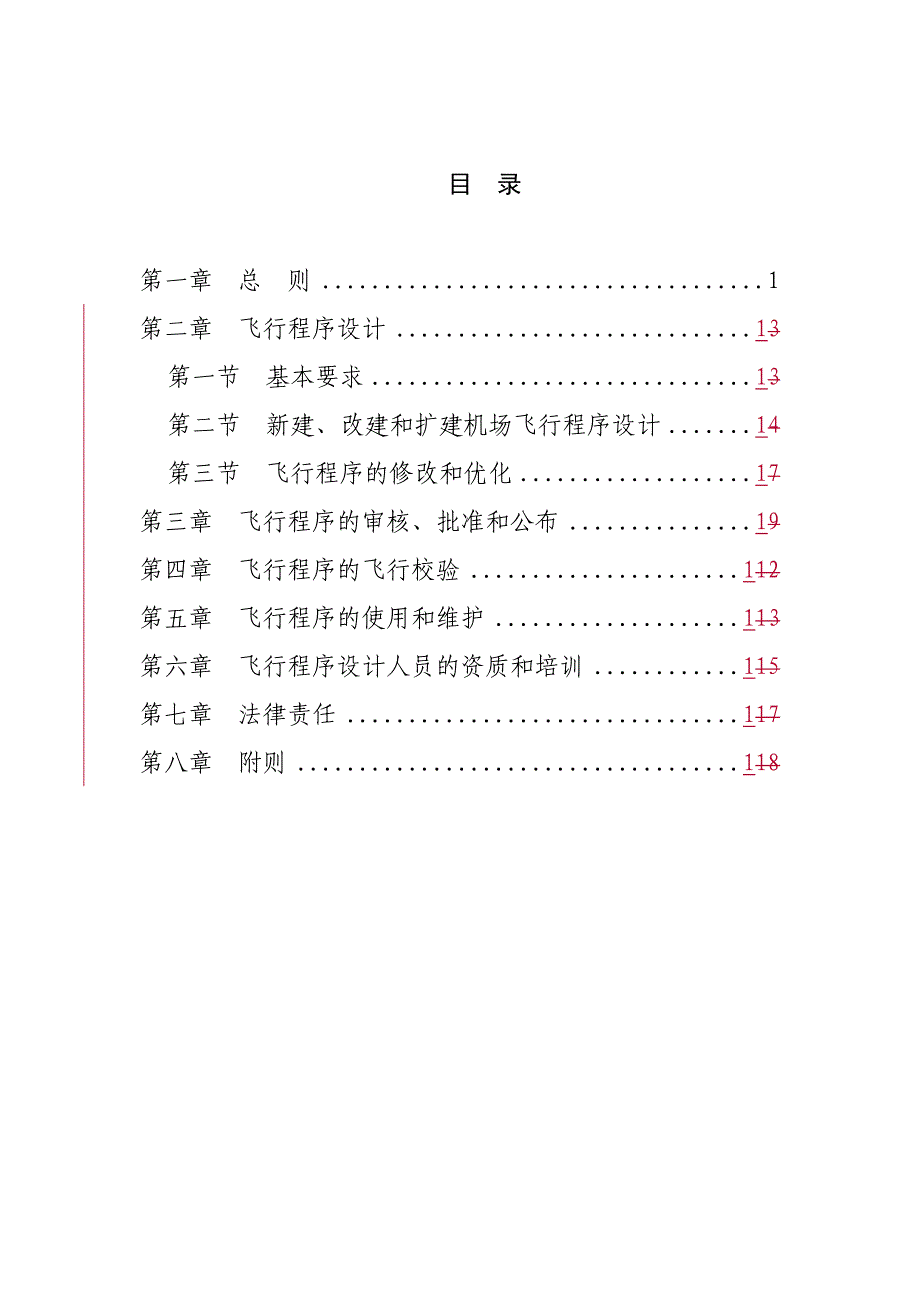 目 录
第一章 总 则 ....................................1
第二章 飞行程序设计 .............................13
第一节 基本要求 ...............................13
第二节 新建、改建和扩建机场飞行程序设计 .......14
第三节 飞行程序的修改和优化 ...................17
第三章 飞行程序的审核、批准和公布 ...............19
第四章 飞行程序的飞行校验 ......................112
第五章 飞行程序的使用和维护 ....................113
第六章 飞行程序设计人员的资质和培训 ............115
第七章 法律责任 ................................117
第八章 附则 ....................................118